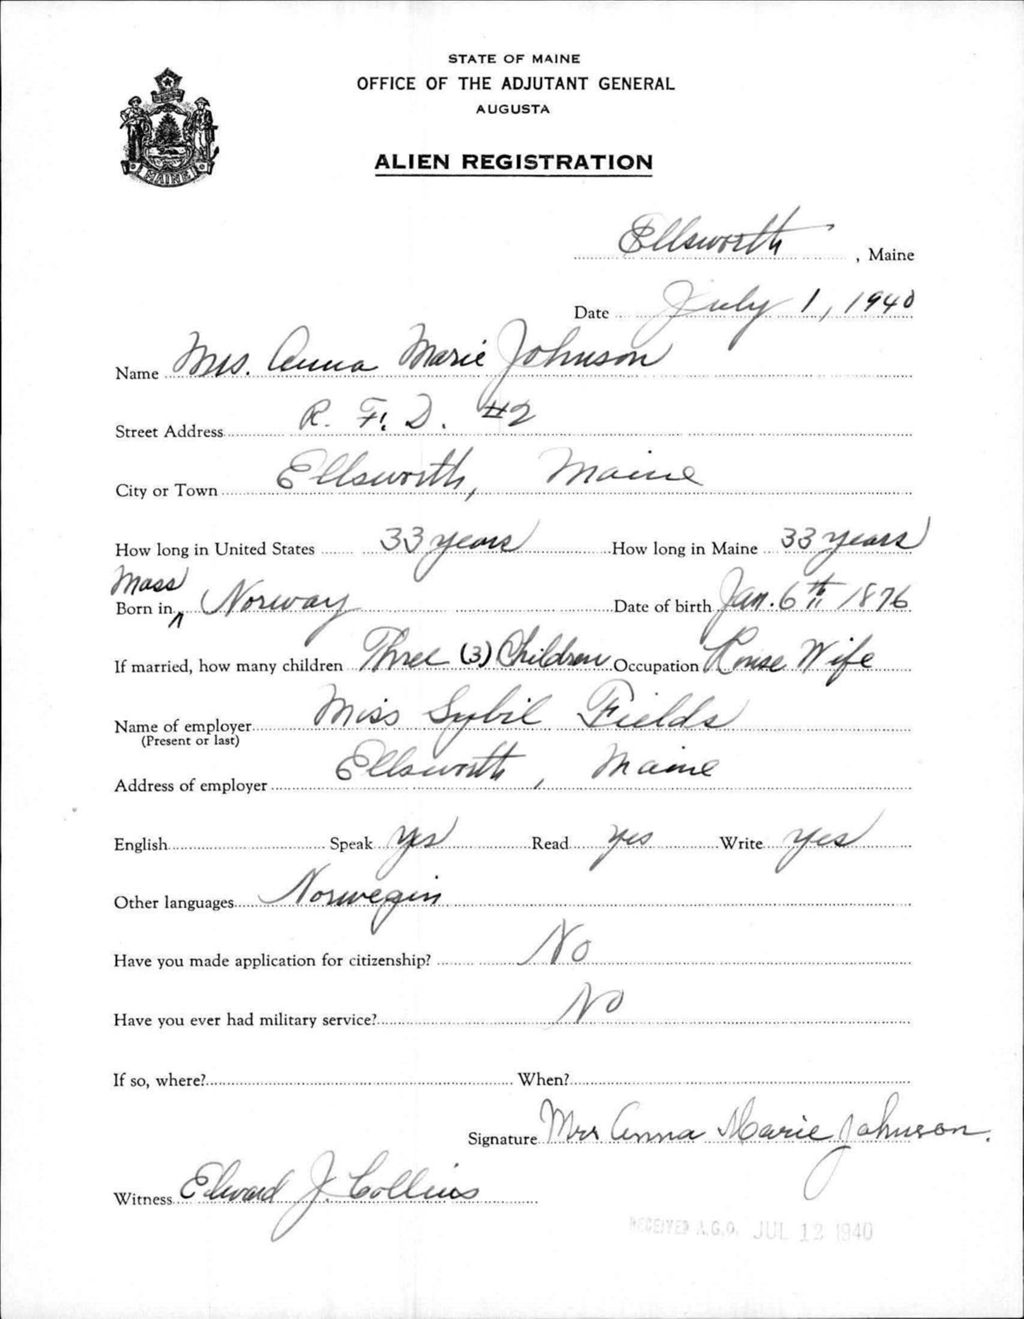 STATE OF MAINE
OFFICE OF THE ADJUTANT GENERAL
AUGUSTA
ALIEN REGISTRATION
MAINE
Ellsworth, Maine
Date July 1, 1940
Name Mrs. Anna Marie Johnson
Street Address R. F. D. #2
City or Town Ellsworth, Maine
How long in United States 33 years How long in Maine 33 years
Moss
Born in ^ Norway Date of birth Jan. 6th 1876
If married, how many children Three (3) Children Occupation House Wife
Name of employer Miss Sybil Fields
(Present or last)
Address of employer Ellsworth, Maine
English Speak yes Read yes Write yes
Other languages Norwegin
Have you made application for citizenship? No
Have you ever had military service? No
If so, where? When?
Signature Mrs Anna Marie Johnson.
Witness Edward J. Collins
RECEIVED A.G.O. JUL 12 1940